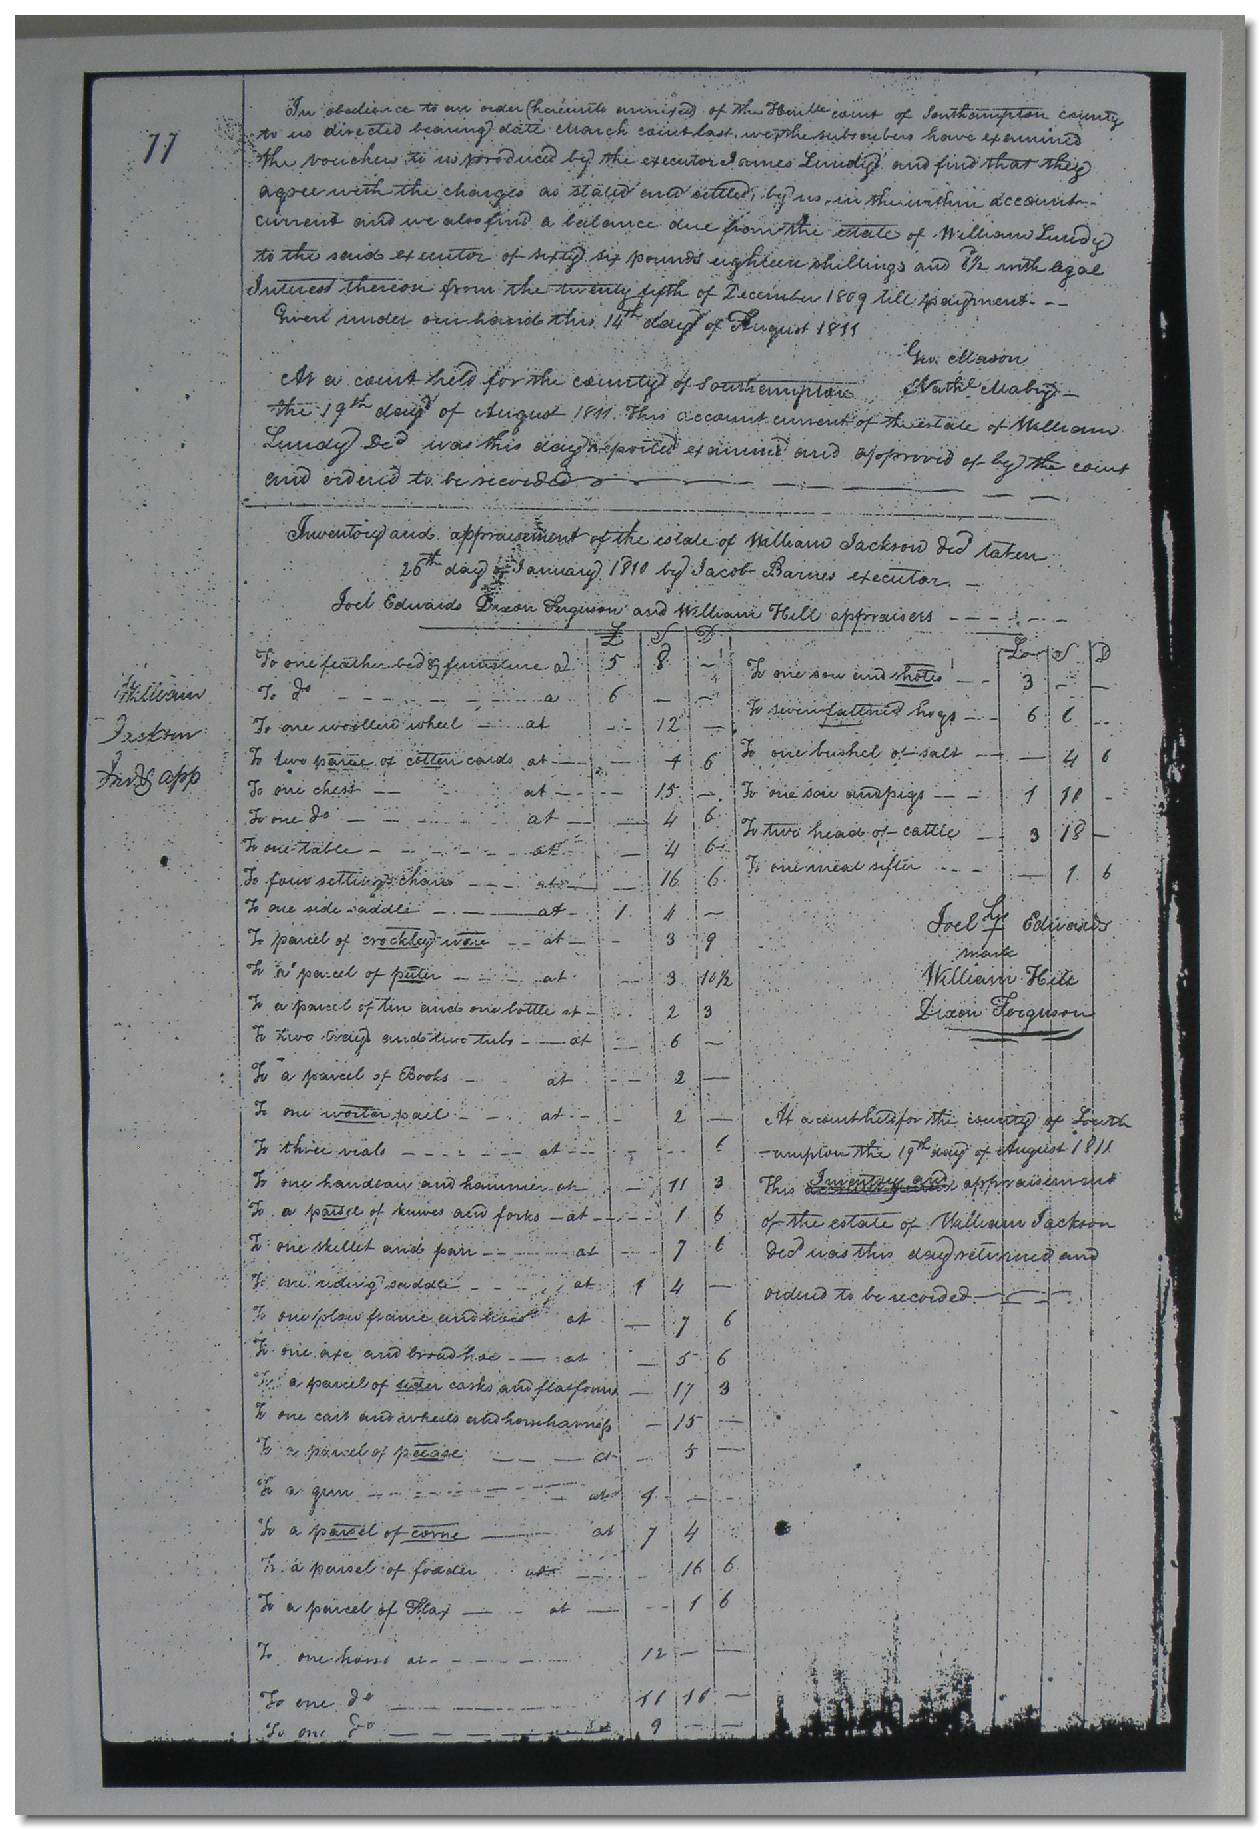 77
In obedience to an order (hereunto annixed) of the Honble court of Southampton county
to us directed bearing date March court last, we the subscribers have examined
the vouchers to us produced by the executor James Lundy and find that they
agree with the charges as stated and settled, by us, in the within account-
current and we also find a balance due from the estate of William Lundy
to the said executor of sixty six pounds eighteen shillings and with legal
Interest thereon from the twenty fifth of December 1809 till payment - -
Given under our hands this 14th day of August 1811
Geo. Mason
Nathl Mabry
At a court held for the county of Southampton
the 19th day of August 1811. This account current of the estate of William
Lundy Decd was this day reported examined and approved of by the court
and ordered to be recorded
Inventory and appraisement of the estate of William Jackson decd taken
26th day of January 1810 by Jacob Barnes executor. -
Joel Edwards Dixon Ferguson and William Hill appraisers
William
Jackson
Inv & app
£ S D
To one feather bed & furniture at 5 8 -
To do - - - - a 6 - -
To one woollend wheel - at - 12 -
To two parce of cotten cards at - 4 6
To one chest - - at - 15 -
To one do - - at - 4 6
To one table - - - at - 4 6
To four setting chairs - - at - 16 6
To one side saddle - at - 1 4 -
To parcel of crockley ware - at - 3 9
To a parcel of puter - - at - 3 10½
To a parcel of tin and one bottle at - 2 3
To two trays and two tubs - at - 6 -
To a parcel of Books - at - 2 -
To one worter pail - at - 2 -
To three vials - - - at - - 6
To one handsaw and hammer at - 11 3
To a parsel of knives and forks - at - 1 6
To one skellet and pan - at - 7 6
To one riding saddle - at 1 4 -
To one plow frame and hoes at - 7 6
To one axe and broad hoe - at - 5 6
To a parcel of sider casks and flatforms - 17 3
To one cart and wheels and horse harness - 15 -
To a parcel of pease - at - 5 -
To a gun - - at - -
To a parsel of corne - at 7 4
To a parsel of fodder at - 16 6
To a parcel of Flax - at - 1 6
To one horse at - 12 - -
To one do - 11 10 -
To one do - 9 - -
£ S D
To one sow and shotes - 3 - -
To seven fattned hogs - 6 6 -
To one bushel of salt - - 4 6
To one sow and pigs - 1 10 -
To two head of cattle - 3 18 -
To one meal sifter - - 1 6
Joel Edwards
mark
William Hill
Dixon Ferguson
At a court held for the county of South
-ampton the 19th day of August 1811
This Inventory and appraisement
of the estate of William Jackson
decd was this day returned and
ordered to be recorded